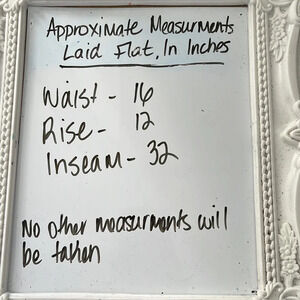 Approximate Measurments
Laid Flat, In Inches
Waist - 16
Rise - 12
Inseam - 32
No other measurments will
be taken